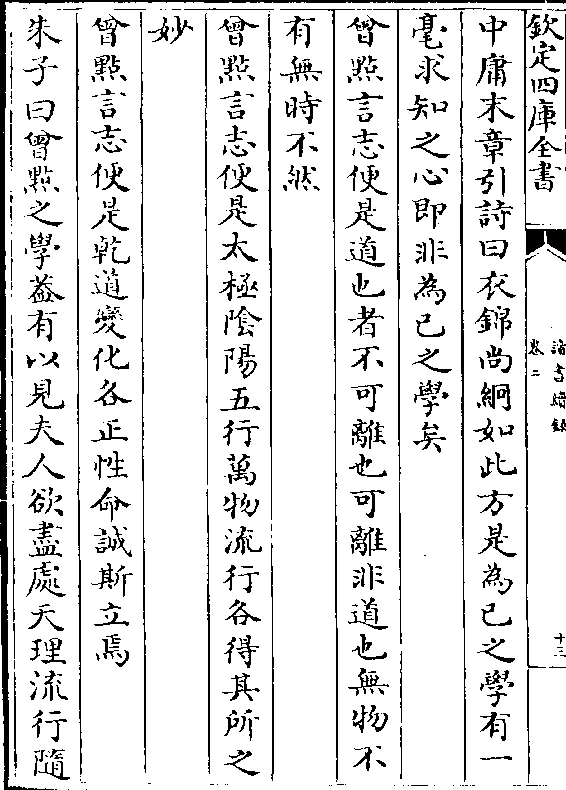 欽定四庫全書
讀書續録
卷二
十三
中庸末章引詩曰衣錦尚絅如此方是為已之學有一
毫求知之心即非為已之學矣
曾㸃言志便是道也者不可離也可離非道也無物不
有無時不然
曾㸃言志便是太極隂陽五行萬物流行各得其所之
妙
曾㸃言志便是乾道變化各正性命誠斯立焉
朱子曰曾㸃之學葢有以見夫人欲盡處天理流行隨